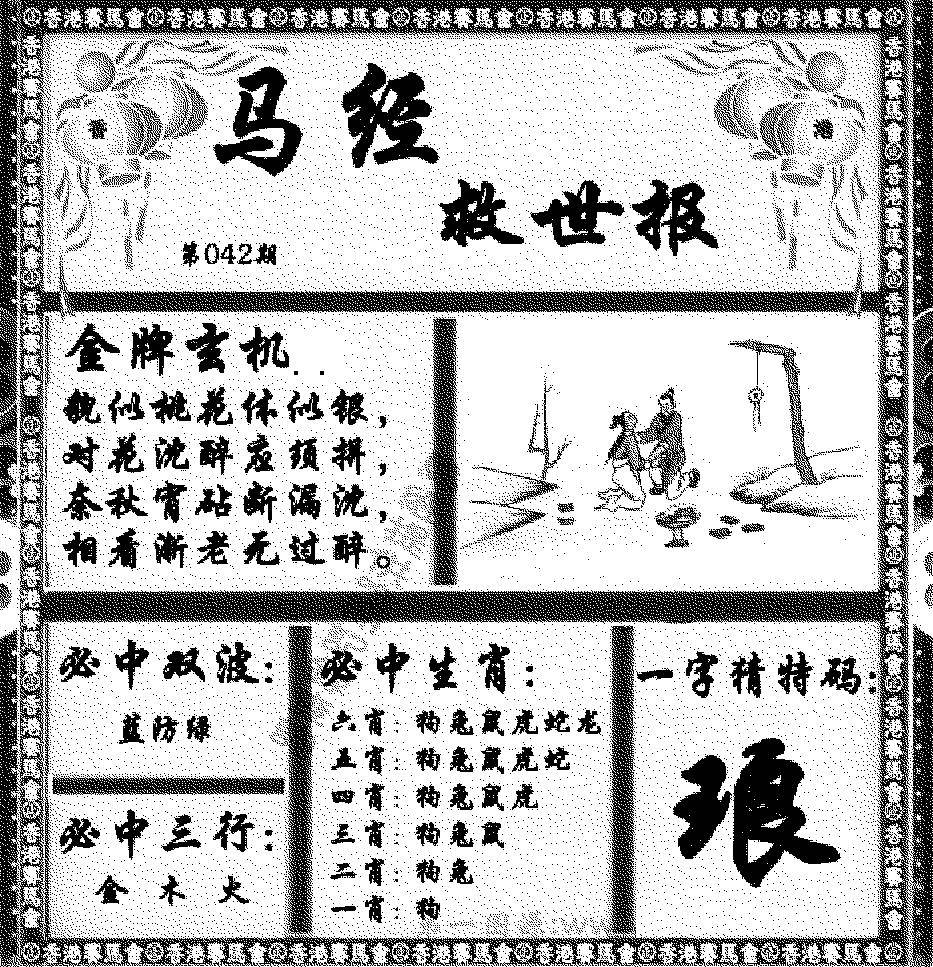 香港赛馬會香港赛馬會香港赛馬會香港赛馬會香港赛馬會香港赛馬會香港赛馬會
香
港
马经
救世报
第042期
金牌玄机..
貌似桃花体似银，
对花沈醉应须拼，
奈秋宵砧断漏沈，
相看渐老无过醉。
必中双波：
蓝防绿
必中三行：
金 木 火
必中生肖：
六肖：狗兔鼠虎蛇龙
五肖：狗兔鼠虎蛇
四肖：狗兔鼠虎
三肖：狗兔鼠
二肖：狗兔
一肖：狗
一字猜特码：
琅
香港赛馬會香港赛馬會香港赛馬會香港赛馬會香港赛馬會香港赛馬會香港赛馬會